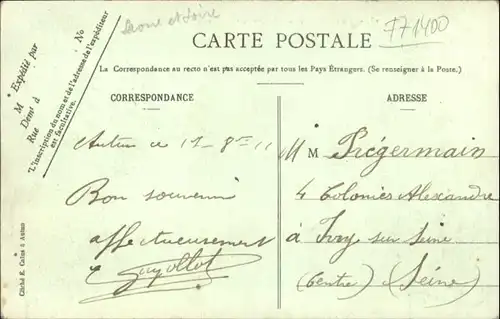 Saone et Loire
F71400
CARTE POSTALE
La Correspondance au recto n'est pas acceptée par tous les Pays Étrangers. (Se renseigner à la Poste.)
Expédié par
M
Demt à
Rue No
*L'inscription du nom et de l'adresse de l'expéditeur
est facultative.
CORRESPONDANCE
Autun ce 11
Bon souvenir
affectueusement
E Guyollot
ADRESSE
M M Prégermain
4 Colonies Alexandre
à Ivry sur Seine
(Centre) (Seine)
Cliché E. Autun